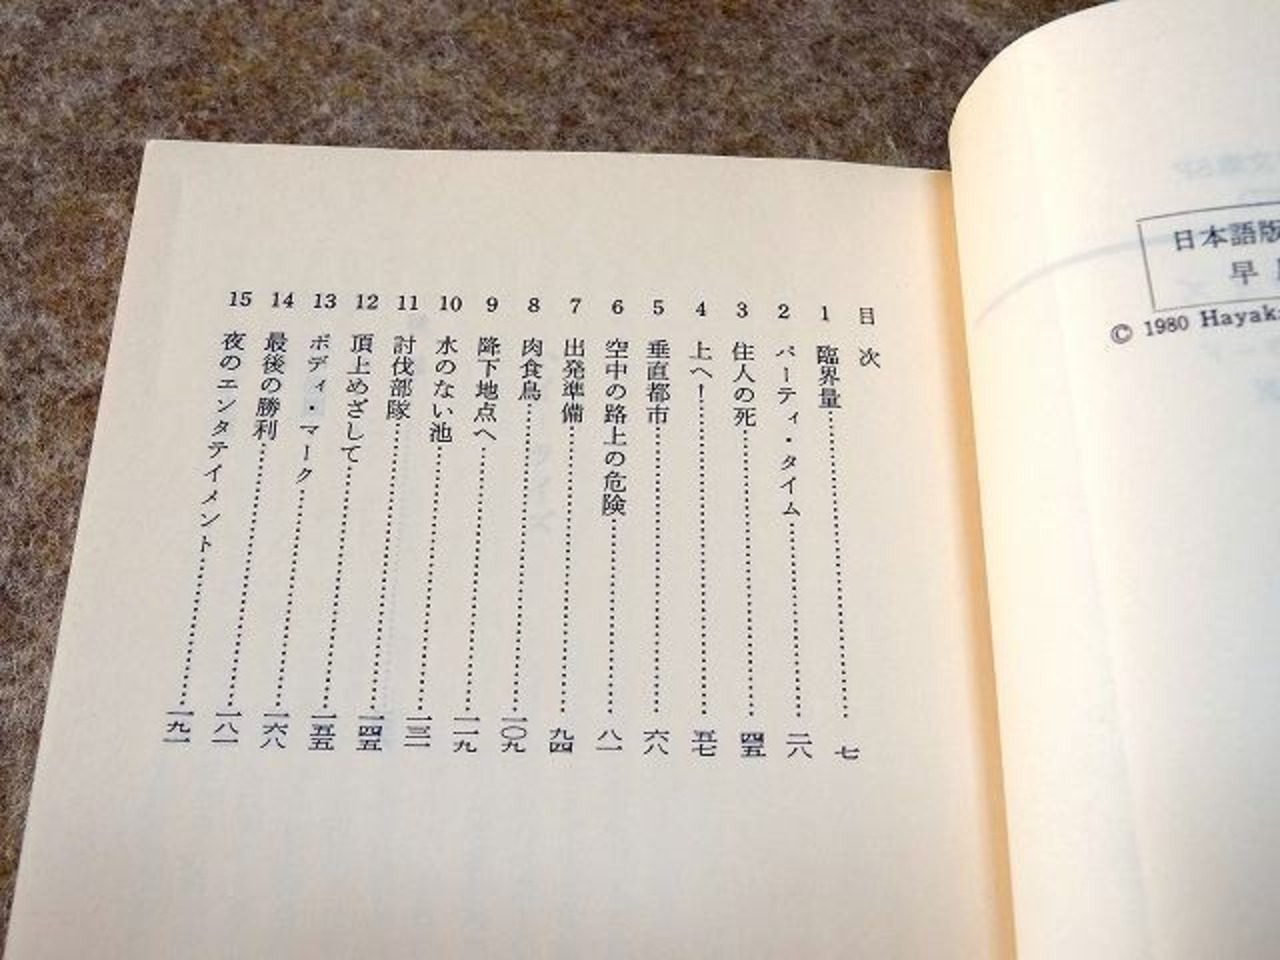 目次
1 臨界量……七
2 パーティ・タイム……二八
3 住人の死……四五
4 上へ!……五七
5 垂直都市……六八
6 空中の路上の危険……八一
7 出発準備……九四
8 肉食鳥……一〇九
9 降下地点へ……一一九
10 水のない池……一三一
11 討伐部隊……一四五
12 頂上めざして……一五五
13 ボディ・マーク……一六八
14 最後の勝利……一八一
15 夜のエンタテイメント……一九一
日本語版
早
© 1980 Hayak